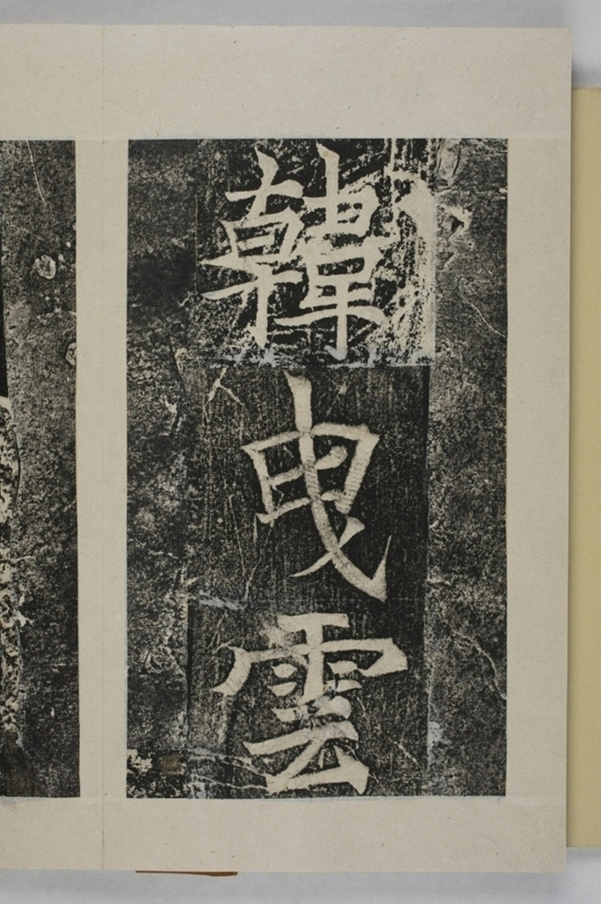 韓曳雲